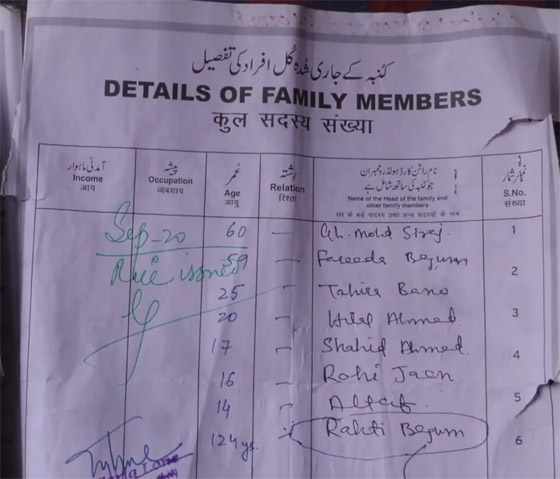 کنبہ کے جاری شدہ کل افراد کی تفصیل
DETAILS OF FAMILY MEMBERS
कुल सदस्य संख्या
آمدنی ماہوار پیشہ عمر رشتہ نام راشن کارڈ ہولڈر و ممبران نمبر شمار
جو کنبہ کی ساتھ شامل ہے
Income Occupation Age Relation Name of the Head of the family and S.No.
other family members
आय व्यवसाय आयु रिश्ता घर के बड़े सदस्य तथा अन्य सदस्यों के नाम संख्या
Sep-20 60 Gh. Mohd Siraj 1
Rice issued 59 Fareeda Begum 2
25 Tahira Bano
20 Hilal Ahmed 3
17 Shahid Ahmed 4
16 Rohi Jaan
14 Altaf 5
124 ys. Rahti Begum 6